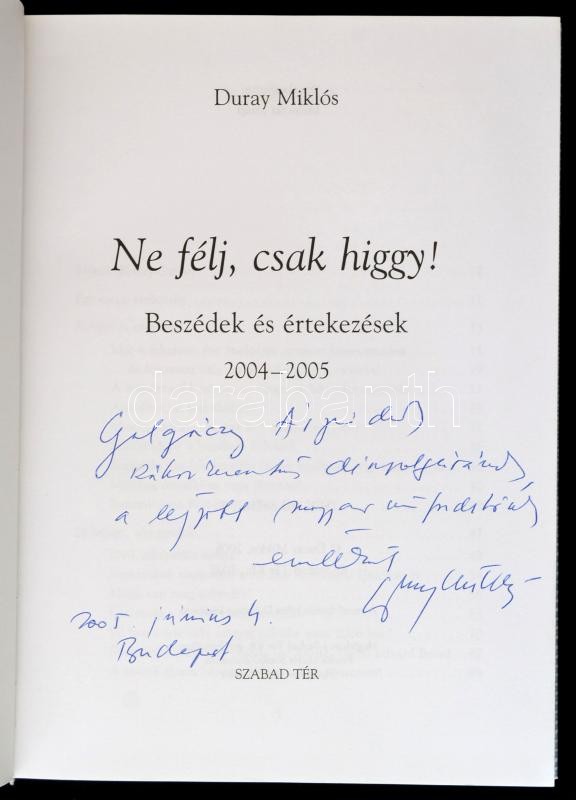 Duray Miklós
Ne félj, csak higgy!
Beszédek és értekezések
2004–2005
darabanth
Galgóczy Árpádnak
a legjobb magyar műfordítónak
emlékül
2005. június 4.
Budapest
SZABAD TÉR